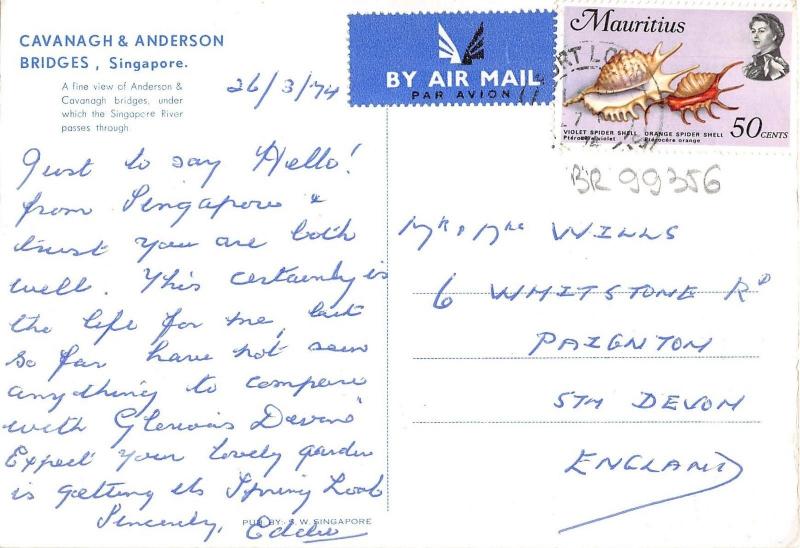 CAVANAGH & ANDERSON
BRIDGES, Singapore.
A fine view of Anderson &
Cavanagh bridges, under
which the Singapore River
passes through
26/3/74
BY AIR MAIL
PAR AVION
Mauritius
VIOLET SPIDER SHELL ORANGE SPIDER SHELL
Ptérocère violet Ptérocère orange
50 CENTS
PORT LO
BR 99356
Just to say Hello!
from Singapore &
trust you are both
well. This certainly is
the life for me, but
so far have not seen
anything to compare
with Glorious Devon"
Expect your lovely garden
is getting its Spring look
Sincerely, Eddie
PUB BY: S.W. SINGAPORE
Mr & Mrs WILLS
6 WHITSTONE RD
PAIGNTON
STH DEVON
ENGLAND